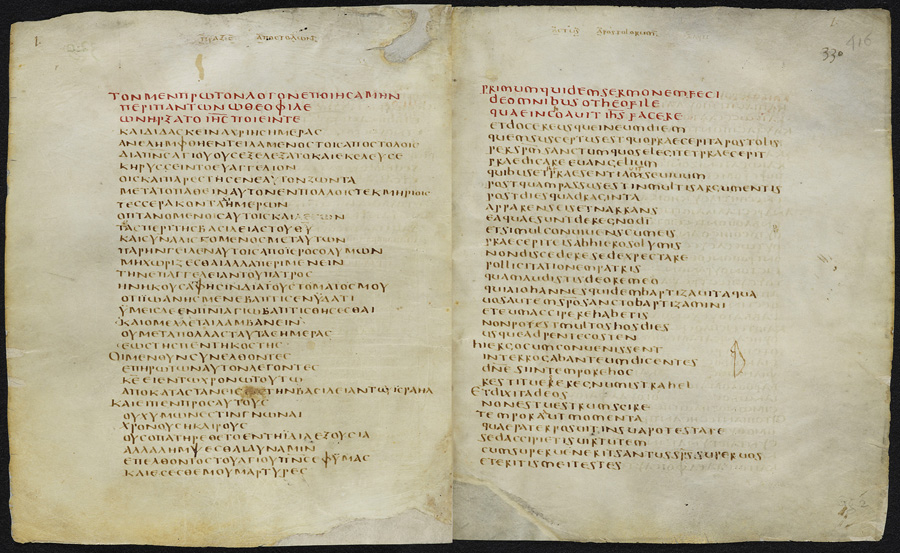 ΠΡΑΞΙΣ ΑΠΟΣΤΟΛΩΝ
ΤΟΝΜΕΝΠΡΩΤΟΝΛΟΓΟΝΕΠΟΙΗΣΑΜΗΝ
ΠΕΡΙΠΑΝΤΩΝΩΘΕΟΦΙΛΕ
ΩΝΗΡΞΑΤΟΙΗΣΠΟΙΕΙΝΤΕ
ΚΑΙΔΙΔΑΣΚΕΙΝΑΧΡΙΗΣΗΜΕΡΑΣ
ΑΝΕΛΗΜΦΘΗΕΝΤΕΙΛΑΜΕΝΟΣΤΟΙΣΑΠΟΣΤΟΛΟΙΣ
ΔΙΑΠΝΣΑΓΙΟΥΟΥΣΕΞΕΛΕΞΑΤΟΚΑΙΕΚΕΛΕΥΣΕ
ΚΗΡΥΣΣΕΙΝΤΟΕΥΑΓΓΕΛΙΟΝ
ΟΙΣΚΑΙΠΑΡΕΣΤΗΣΕΝΕΑΥΤΟΝΖΩΝΤΑ
ΜΕΤΑΤΟΠΑΘΕΙΝΑΥΤΟΝΕΝΠΟΛΛΟΙΣΤΕΚΜΗΡΙΟΙΣ
ΤΕΣΣΕΡΑΚΟΝΤΑΗΜΕΡΩΝ
ΟΠΤΑΝΟΜΕΝΟΙΣΑΥΤΟΙΣΚΑΙ
ΤΑΣΠΕΡΙΤΗΣΒΑΣΙΛΕΙΑΣΤΟΥΘΥ
ΚΑΙΣΥΝΑΛΙΣΚΟΜΕΝΟΣΜΕΤΑΥΤΩΝ
ΠΑΡΗΝΓΕΙΛΕΝΑΥΤΟΙΣΑΠΟΙΕΡΟΣΟΛΥΜΩΝ
ΜΗΧΩΡΙΖΕΣΘΑΙΑΛΛΑΠΕΡΙΜΕΝΕΙΝ
ΤΗΝΕΠΑΓΓΕΛΕΙΑΝΤΟΥΠΑΤΡΟΣ
ΗΝΗΚΟΥΣΑΦΗΣΙΝΔΙΑΤΟΥΣΤΟΜΑΤΟΣΜΟΥ
ΟΤΙΙΩΑΝΗΣΜΕΝΕΒΑΠΤΙΣΕΝΥΔΑΤΙ
ΥΜΕΙΣΔΕΕΝΠΝΙΑΓΙΩΒΑΠΤΙΣΘΗΣΕΣΘΑΙ
ΚΑΙΟΜΕΛΛΕΤΑΙΛΑΜΒΑΝΕΙΝ
ΟΥΜΕΤΑΠΟΛΛΑΣΤΑΥΤΑΣΗΜΕΡΑΣ
ΕΩΣΤΗΣΠΕΝΤΗΚΟΣΤΗΣ
ΟΙΜΕΝΟΥΝΣΥΝΕΛΘΟΝΤΕΣ
ΕΠΗΡΩΤΩΝΑΥΤΟΝΛΕΓΟΝΤΕΣ
ΚΕΕΙΕΝΤΩΧΡΟΝΩΤΟΥΤΩ
ΑΠΟΚΑΤΑΣΤΑΝΕΙΣ ΤΗΝΒΑΣΙΛΕΙΑΝΤΟΥΙΣΡΑΗΛ
ΚΑΙΕΙΠΕΝΠΡΟΣΑΥΤΟΥΣ
ΟΥΧΥΜΩΝΕΣΤΙΝΓΝΩΝΑΙ
ΧΡΟΝΟΥΣΗΚΑΙΡΟΥΣ
ΟΥΣΟΠΑΤΗΡΕΘΕΤΟΕΝΤΗΙΔΙΑΕΞΟΥΣΙΑ
ΑΛΛΑΛΗΜΨΕΣΘΑΙΔΥΝΑΜΙΝ
ΕΠΕΛΘΟΝΤΟΣΤΟΥΑΓΙΟΥΠΝΣΕΦΥΜΑΣ
ΚΑΙΕΣΕΣΘΕΜΟΥΜΑΡΤΥΡΕΣ
ACTUS APOSTOLORUM
330
416
PRIMUMQUIDEMSERMONEMFECI
DEOMNIBUSOTHEOFILE
QUAEINCOAUITIHSFACERE
ETDOCEREUSQUEINEUMDIEM
QUEMSUSCEPTUSESTQUOPRAECEPITAPOSTOLIS
PERSPMSANCTUMQUOSELEGITETPRAECEPIT
PRAEDICAREEUANGELIUM
QUIBUSETPRAESENTIAMSEUIUUM
POSTQUAMPASSUSESTINMULTISARGUMENTIS
POSTDIESQUADRAGINTA
APPARENSEISETNARRANS
EAQUAESUNTDEREGNODI
ETSIMULCONUIUENSCUMEIS
PRAECEPITEISABHIEROSOLYMIS
NONDISCEDERESEDEXPECTARE
POLLICITATIONEMPATRIS
QUAMAUDISTISDEOREMEO
QUIAIOHANNESQUIDEMBAPTIZAUITAQUA
UOSAUTEMSPOSANCTOBAPTIZAMINI
ETEUMACCIPEREHABETIS
NONPOSTMULTOSHOSDIES
USQUEADPENTECOSTEN
HIERGOCUMCONUENISSENT
INTERROGABANTEUMDICENTES
DNESIINTEMPOREHOC
RESTITUEREREGNUMISTRAHEL
ETDIXITADEOS
NONESTUESTRUMSCIRE
TEMPORAAUTMOMENTA
QUAEPATERPOSUITINSUAPOTESTATE
SEDACCIPIETISUIRTUTEM
CUMSUPERUENERITSANTUSSPSSUPERUOS
ETERITISMEITESTES